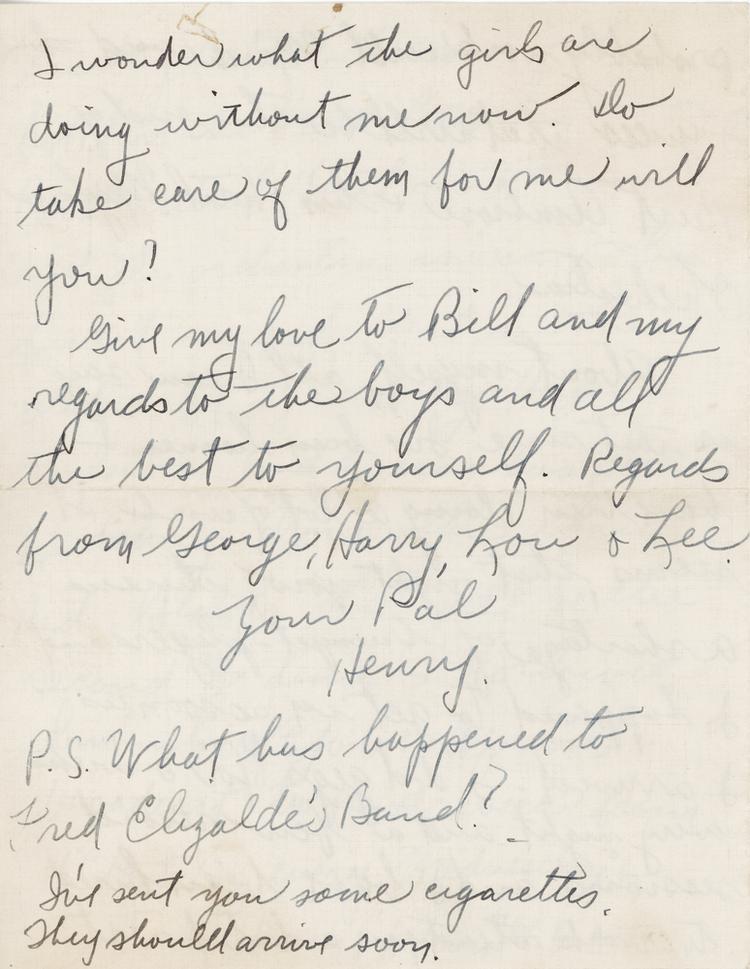 I wonder what the girls are
doing without me now. Do
take care of them for me will
you?
Give my love to Bill and my
regards to the boys and all
the best to yourself. Regards
from George, Harry, Lou & Lee.
Your Pal
Henry.
P.S. What has happened to
Fred Elizalde's Band?
I've sent you some cigarettes.
They should arrive soon.